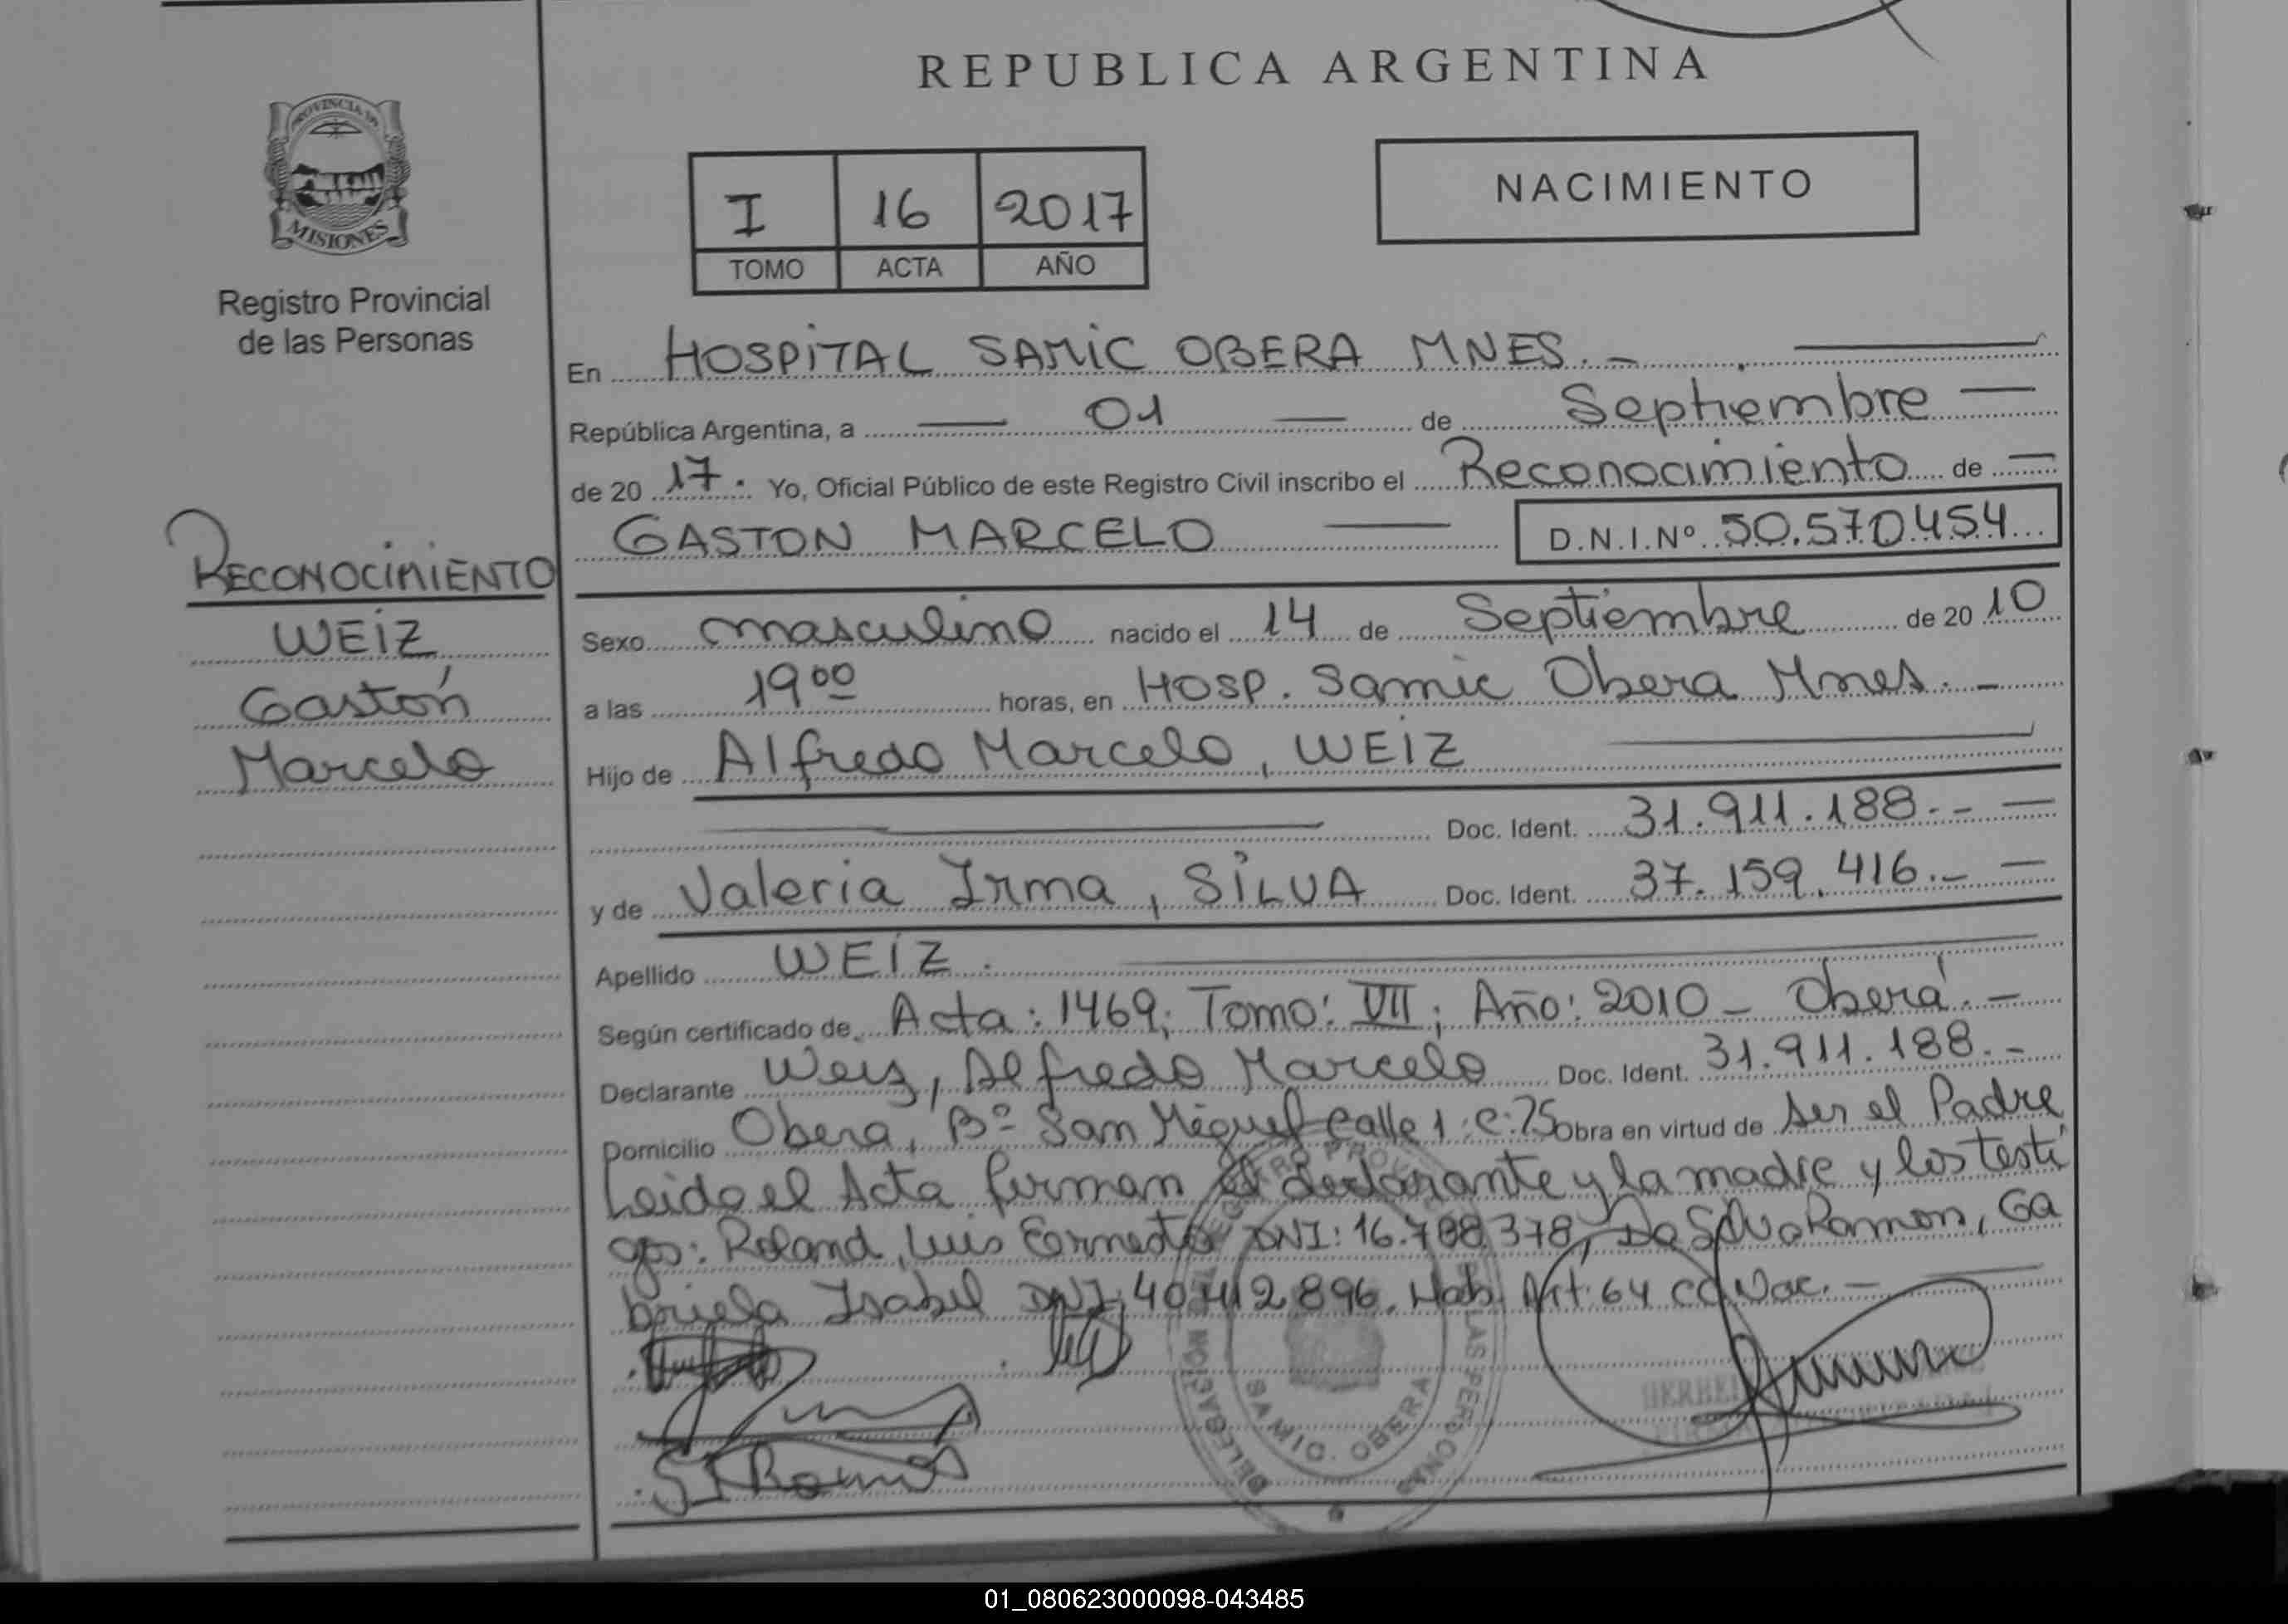 REPUBLICA ARGENTINA
PROVINCIA DE
MISIONES
Registro Provincial
de las Personas
I 16 2017
TOMO ACTA AÑO
NACIMIENTO
En HOSPITAL SAMIC OBERA MNES.-
República Argentina, a 01 de Septiembre
de 20 17. Yo, Oficial Público de este Registro Civil inscribo el Reconocimiento de
GASTON MARCELO D.N.I.Nº 50.570454
RECONOCIMIENTO
WEIZ
Gastón
Marcelo
Sexo masculino nacido el 14 de Septiembre de 20 10
a las 19 00 horas, en Hosp. Samic Obera Mnes.-
Hijo de Alfredo Marcelo, WEIZ
Doc. Ident. 31.911.188.-
y de Valeria Irma, SILVA Doc. Ident. 37.159.416.-
Apellido WEIZ.
Según certificado de Acta: 1469; Tomo: VII; Año: 2010 - Oberá.-
Declarante Weiz, Alfredo Marcelo Doc. Ident. 31.911.188.-
Domicilio Obera, Bº San Miguel Calle 1 C:75 Obra en virtud de ser el Padre
Leido el Acta firman el declarante y la madre y los testi
gos: Roland, Luis Ernesto DNI: 16.788.378, Da Silva Ramon, Ga
briela Isabel DNI: 40.412.896. Hab. Art. 64 Nac.-
DELEGACION
LAS PERSONAS
SAMIC. OBERA
01_080623000098-043485